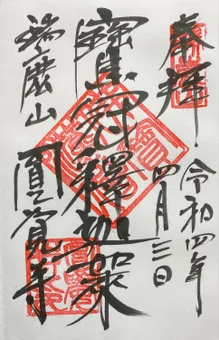 奉拝
令和四年
四月三日
寳冠釋迦如来
瑞鹿山
圓覚寺